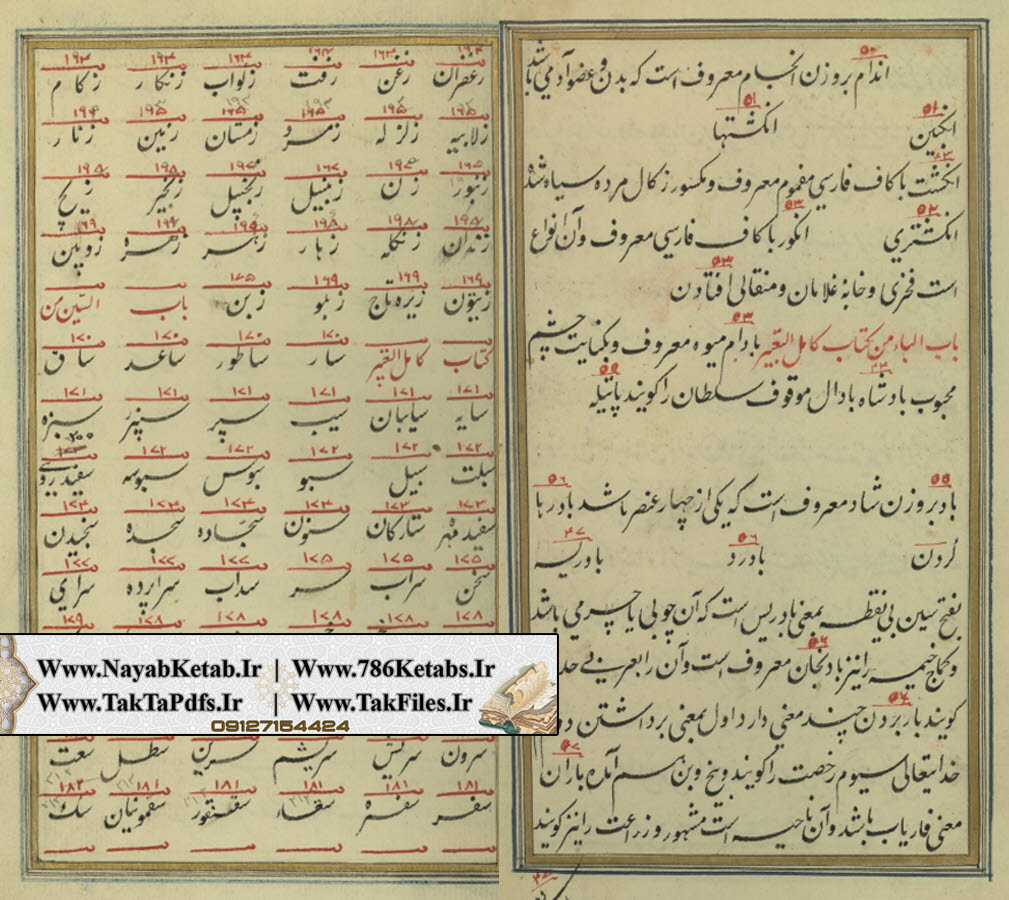 اندام بروزن انجام معروف است که بدن و عضو آدمی باشد
انگبین انگشتها
انگشت با کاف فارسی مضموم معروف و مکسور زکال مرده سیاه شده
انگشتری انگور با کاف فارسی معروف و آن انواع
است فخری و خایهٔ غلامان و مثقالی افتادن
باب الباء من کتاب کامل التعبیر بادام میوه معروف و بکنایت چشم
محبوب بادشاه با دال موقوف سلطان را گویند پاتیله
باد بروزن شاد معروف است که یکی از چهار عنصر باشد بادرها
کردن بادرد بادریسه
بفتح سین بی نقطه بمعنی بادریس است که آن چوبی یا چرمی باشد
و کماج خیمه را نیز بادنجان معروف است و آن را بعربی حد
گویند بار بردن چند معنی دارد اول بمعنی برداشتن
خدایتعالی سیوم رخصت را گویند و بیخ و بن اسم آمده باران
معنی فاریاب باشد و آن ناحیه است مشهور و زراعت را نیز گویند
زعفران زغن زفت زکواب زنکار زکام
زلابیه زلزله زمرد زمستان زمین زنار
زنبور زن زنبیل زنجبیل زنجیر زنخ
زندان زنکله زهار زهر زهره زوبین
زیتون زیره تاج زیلو زین باب السین من
کتاب کامل التعبیر سار ساطور ساعد ساق
سایه سایبان سیب سپر سپرز سبزه
سبلت سبیل سبو سبوس سبوسه سفیدروی
سفیدمهره ستارکان ستون سجاده سجده سنجیدن
سخن سراب سر سداب سراپرده سرای
Www.NayabKetab.Ir | Www.786Ketabs.Ir
Www.TakTaPdfs.Ir | Www.TakFiles.Ir
09127154424
سرون سریش سریشم سرین سطل سعت
سفر سفره سقاء سقنقور سقمونیان سک